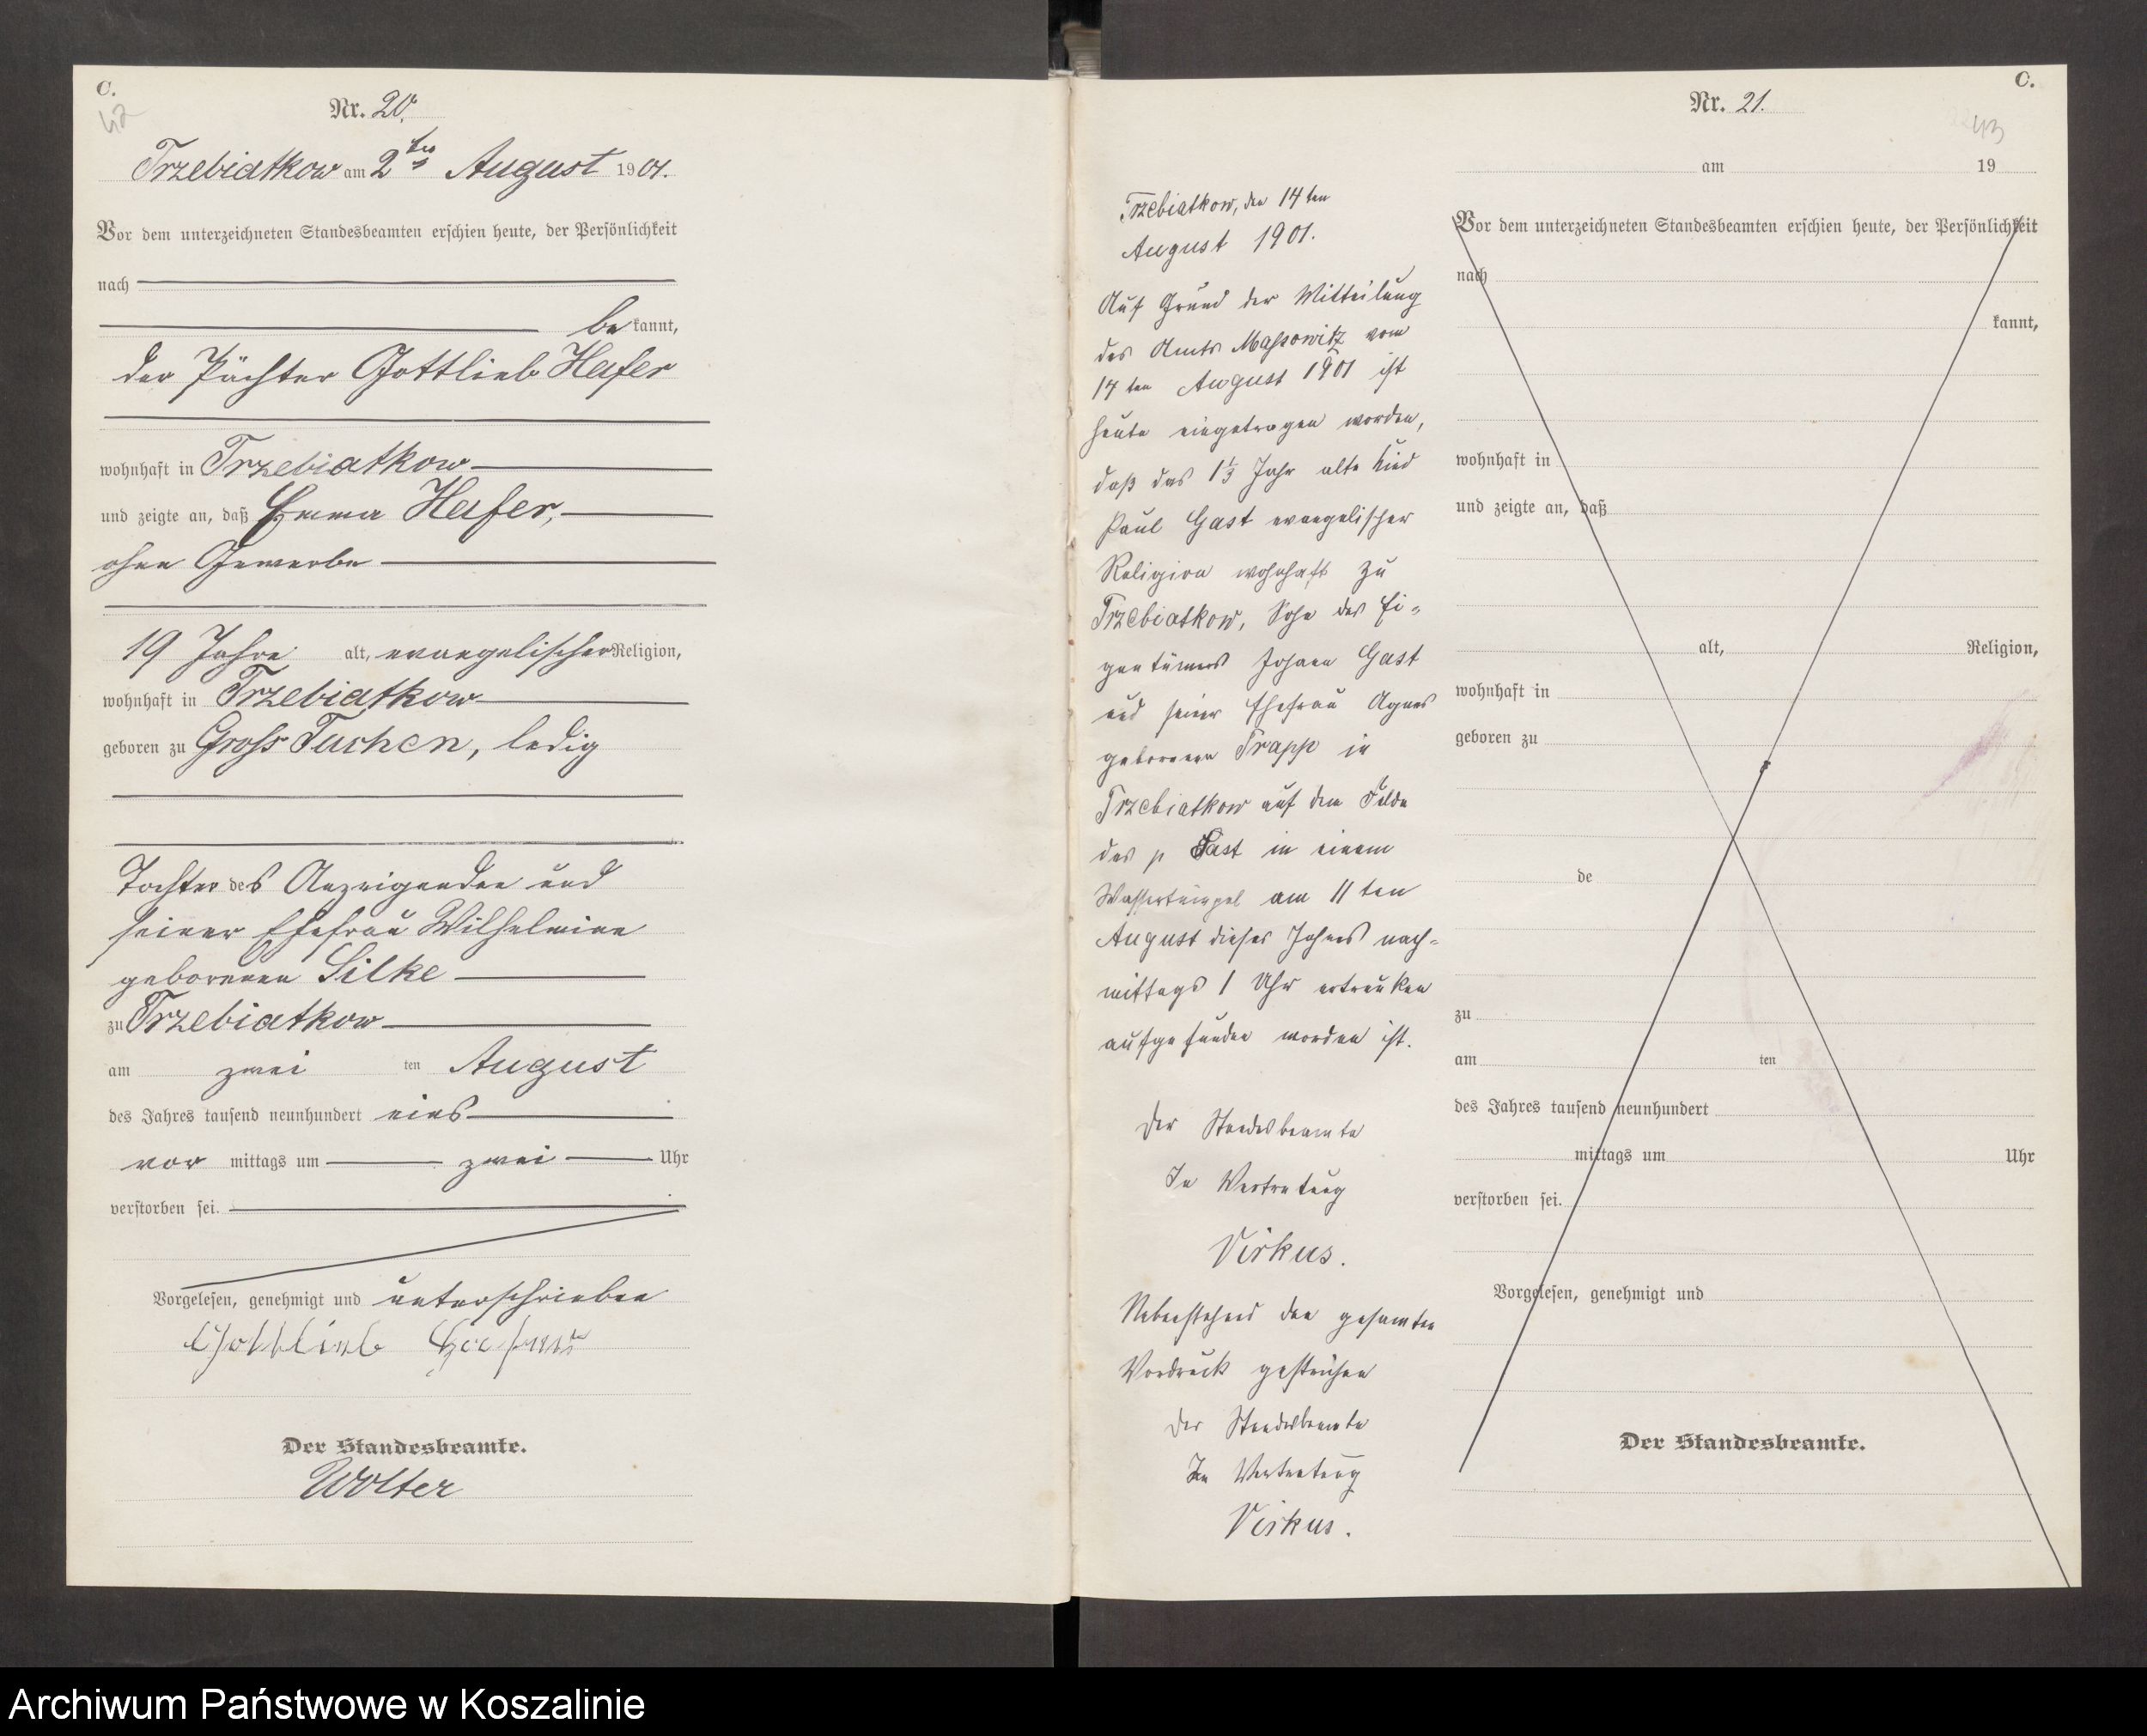 C.
42
Nr. 20.
Trzebiatkow am 2ten August 1901.
Vor dem unterzeichneten Standesbeamten erschien heute, der Persönlichkeit
nach
be kannt,
der Pächter Gottlieb Hafer
wohnhaft in Trzebiatkow
und zeigte an, daß Emma Hafer,
ohne Gewerbe
19 Jahre alt, evangelischer Religion,
wohnhaft in Trzebiatkow
geboren zu Gross Tuchen, ledig
Tochter des Anzeigenden und
seiner Ehefrau Wilhelmine
geborenen Silke
zu Trzebiatkow
am zwei ten August
des Jahres tausend neunhundert eins
vor mittags um zwei Uhr
verstorben sei.
Vorgelesen, genehmigt und unterschrieben
Gottlieb
Der Standesbeamte.
Wolter
C.
43
Nr. 21.
am 19
Trzebiatkow, den 14ten
August 1901.
Auf Grund der Mitteilung
des Amts Massowitz vom
14ten August 1901 ist
heute eingetragen worden,
daß das 1⅓ Jahr alte Kind
Paul Gast evangelischer
Religion wohnhaft zu
Trzebiatkow, Sohn des Ei-
gentümers Johann Gast
und seiner Ehefrau Agnes
geborenen Trapp in
Trzebiatkow auf dem Felde
des p Gast in einem
Wassertümpel am 11ten
August dieses Jahres nach-
mittags 1 Uhr ertrunken
aufgefunden worden ist.
Der Standesbeamte
In Vertretung
Virkus.
Nebenstehend den gesamten
Vordruck gestrichen
Der Standesbeamte
In Vertretung
Virkus.
Vor dem unterzeichneten Standesbeamten erschien heute, der Persönlichkeit
nach
kannt,
wohnhaft in
und zeigte an, daß
alt, Religion,
wohnhaft in
geboren zu
de
zu
am ten
des Jahres tausend neunhundert
mittags um Uhr
verstorben sei.
Vorgelesen, genehmigt und
Der Standesbeamte.
Archiwum Państwowe w Koszalinie